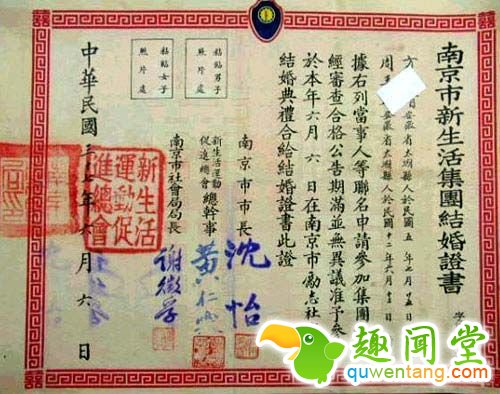 南京市新生活集團結婚證書
方 安徽省太湖縣人於民國五年七月廿五日
周 安徽省太湖縣人於民國十二年六月十二
據右列當事人等聯名申請參加集團
經審查合格公告期滿並無異議准予參
於本年六月六日在南京市勵志社
結婚典禮合給結婚證書此證
南京市市長 沈怡
新生活運動促進總會總幹事 黃仁
南京市社會局局長 謝徵孚
粘貼男子照片處
粘貼女子照片處
中華民國 七年六月六日
新生活運動促進總會
趣闻堂
quwentang.com